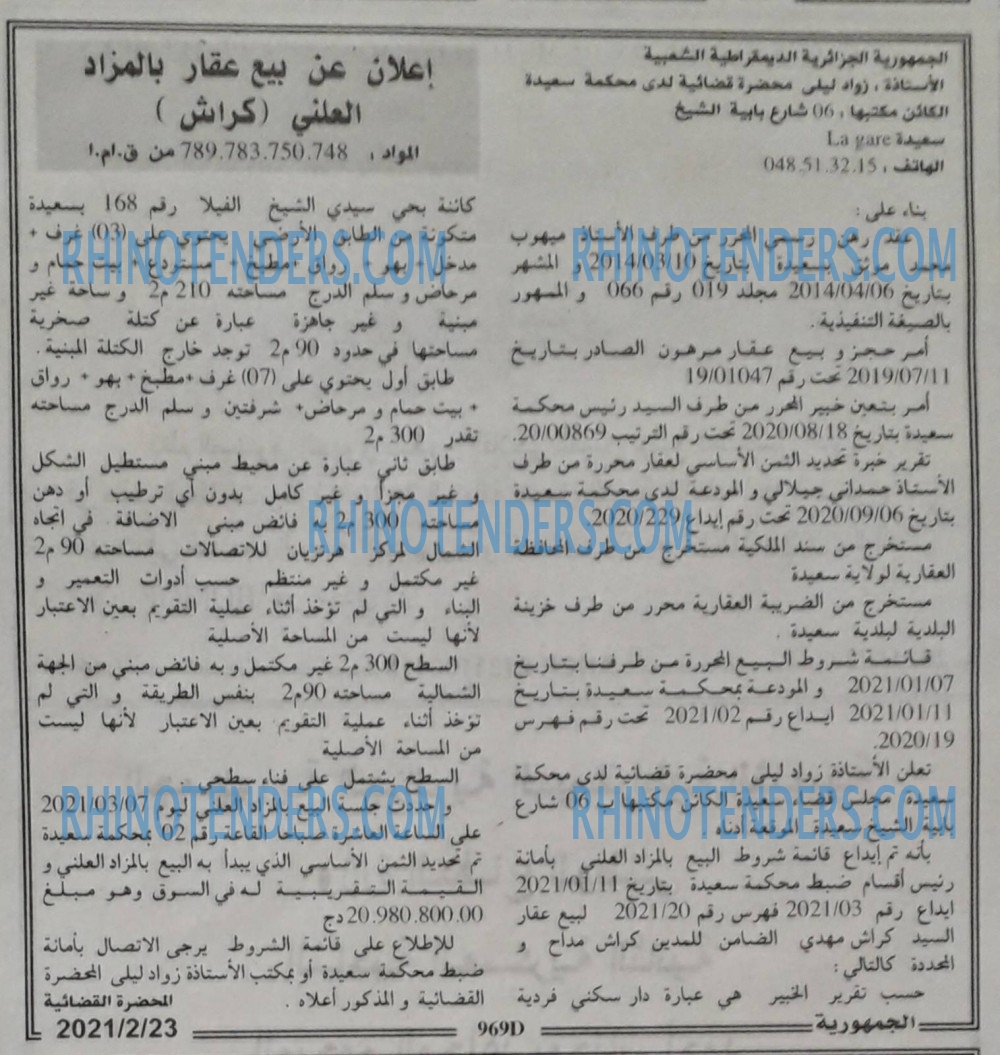 الجمهورية الجزائرية الديمقراطية الشعبية
الأستاذة ، زواد ليلى محضرة قضائية لدى محكمة سعيدة
الكائن مكتبها ، 06 شارع بابية الشيخ
سعيدة La gare
الهاتف ، 048.51.32.15
إعلان عن بيع عقار بالمزاد
العلني (كراش)
المواد، 789.783.750.748 من ق.ام.ا
بناء على :
عقد رهن رسمي المحرر من طرف الأستاذ ميهوب
محمد مرتق بسعيدة بتاريخ 2014/03/10 و المشهر
بتاريخ 2014/04/06 مجلد 019 رقم 066 و الممهور
بالصيغة التنفيذية .
أمر حجز و بيع عقار مرهون الصادر بتاريخ
2019/07/11 تحت رقم 19/01047
أمر بتعين خبير المحرر من طرف السيد رئيس محكمة
سعيدة بتاريخ 2020/08/18 تحت رقم الترتيب 20/00869.
تقرير خبرة تحديد الثمن الأساسي لعقار محررة من طرف
الأستاذ حمداني جيلالي و المودعة لدى محكمة سعيدة
بتاريخ 2020/09/06 تحت رقم إيداع 2020/229
مستخرج من سند الملكية مستخرج من طرف المحافظة
العقارية لولاية سعيدة
مستخرج من الضريبة العقارية محرر من طرف خزينة
البلدية لبلدية سعيدة .
قائمة شروط البيع المحررة من طرفنا بتاريخ
2021/01/07 و المودعة بمحكمة سعيدة بتاريخ
2021/01/11 ايداع رقم 2021/02 تحت رقم فهرس
2020/19.
تعلن الأستاذة زواد ليلى محضرة قضائية لدى محكمة
سعيدة مجلس قضاء سعيدة الكائن مكتبها ب 06 شارع
بابية الشيخ سعيدة الموقعة أدناه .
بأنه تم إيداع قائمة شروط البيع بالمزاد العلني بأمانة
رئيس أقسام ضبط محكمة سعيدة بتاريخ 2021/01/11
ايداع رقم 2021/03 فهرس رقم 2021/20 لبيع عقار
السيد كراش مهدي الضامن للمدين كراش مداح و
المحددة كالتالي :
حسب تقرير الخبير هي عبارة دار سكني فردية
كائنة بحي سيدي الشيخ الفيلا رقم 168 بسعيدة
متكونة من الطابق الأرضي يحتوي على (03) غرف +
مدخل + بهو + رواق + مطبخ + مستودع + بيت حمام و
مرحاض و سلم الدرج مساحته 210 م2 و ساحة غير
مبنية و غير جاهزة عبارة عن كتلة صخرية
مساحتها في حدود 90 م2 توجد خارج الكتلة المبنية .
طابق أول يحتوي على (07) غرف +مطبخ + بهو + رواق
+ بيت حمام و مرحاض+ شرفتين و سلم الدرج مساحته
تقدر 300 م2
طابق ثاني عبارة عن محيط مبني مستطيل الشكل
و غير مجزأ و غير كامل بدون أي ترطيب أو دهن
مساحته 300 م2 به فائض مبني الاضافة في اتجاه
الشمال لمركز هرتزيان للاتصالات مساحته 90 م2
غير مكتمل و غير منتظم حسب أدوات التعمير و
البناء و التي لم تؤخذ أثناء عملية التقويم بعين الاعتبار
لأنها ليست من المساحة الأصلية
السطح 300 م2 غير مكتمل و به فائض مبني من الجهة
الشمالية مساحته 90م2 بنفس الطريقة و التي لم
تؤخذ أثناء عملية التقويم بعين الاعتبار لأنها ليست
من المساحة الأصلية
السطح يشتمل على فناء سطحي .
و حددت جلسة البيع بالمزاد العلني ليوم 2021/03/07
على الساعة العاشرة صباحا القاعة رقم 02 بمحكمة سعيدة
تم تحديد الثمن الأساسي الذي يبدأ به البيع بالمزاد العلني و
القيمة التقريبية له في السوق وهو مبلغ
20.980.800.00دج
للإطلاع على قائمة الشروط يرجى الاتصال بأمانة
ضبط محكمة سعيدة أو بمكتب الأستاذة زواد ليلى المحضرة
القضائية و المذكور أعلاه .
المحضرة القضائية
الجمهورية
969D
2021/2/23
RHINOTENDERS.COM
RHINOTENDERS.COM
RHINOTENDERS.COM
RHINOTENDERS.COM
RHINOTENDERS.COM